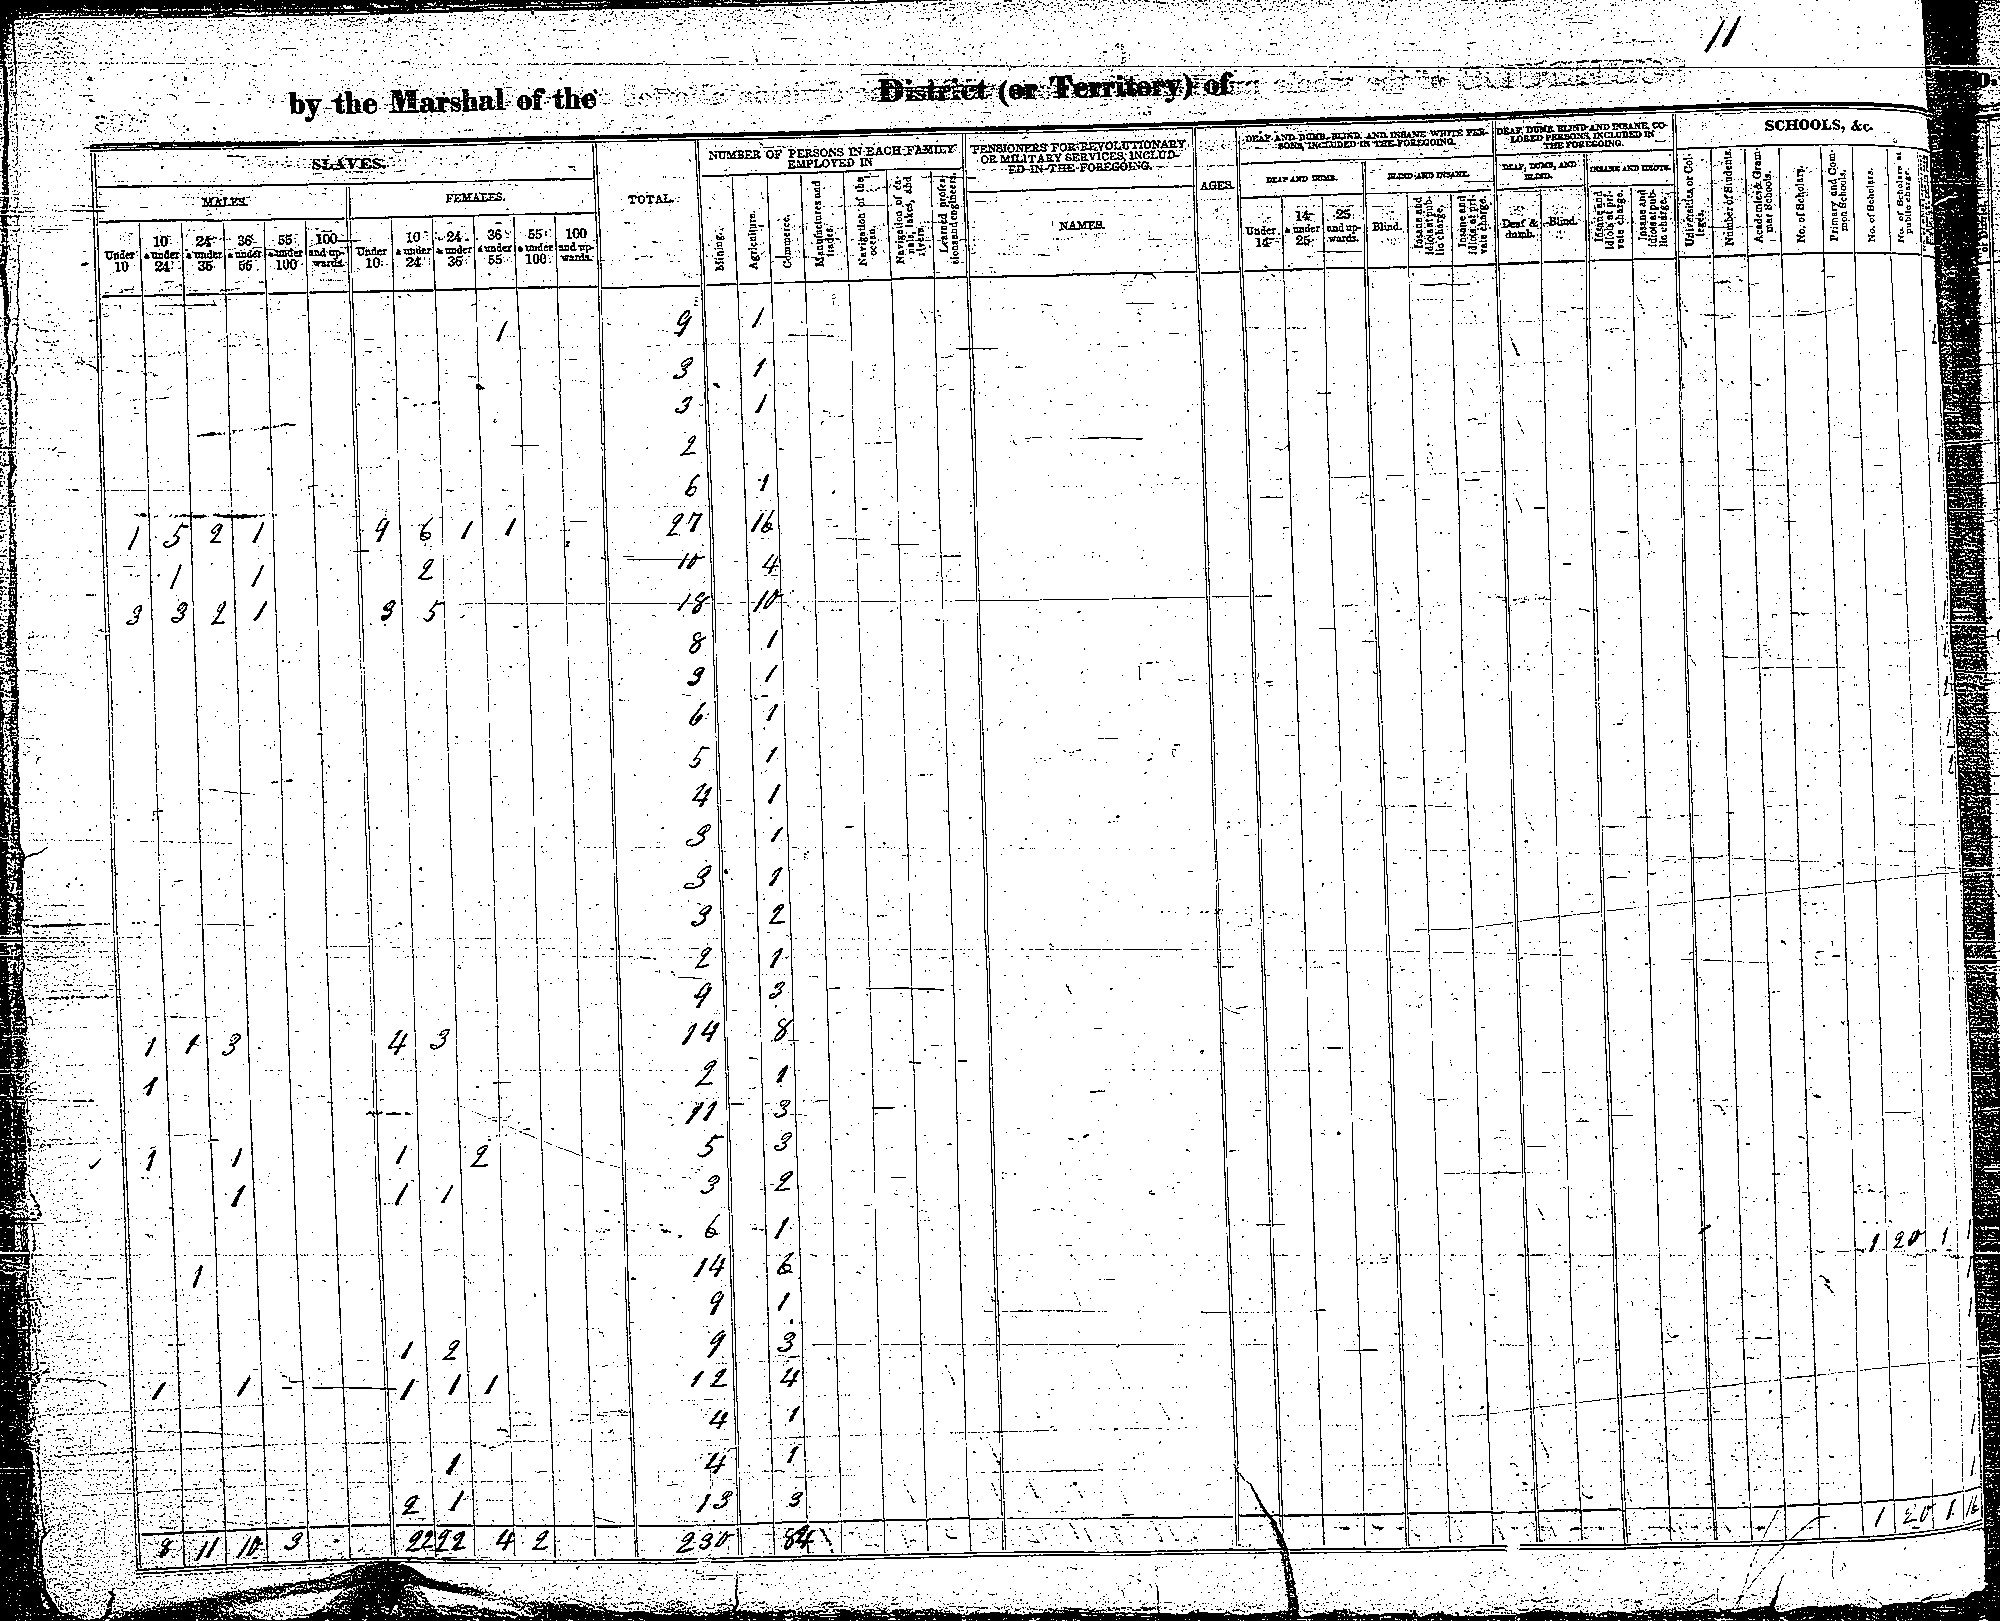 11
by the Marshal of the District (or Territory) of
SLAVES. TOTAL. NUMBER OF PERSONS IN EACH FAMILY EMPLOYED IN PENSIONERS FOR REVOLUTIONARY OR MILITARY SERVICES, INCLUDED IN THE FOREGOING. AGES. DEAF AND DUMB, BLIND, AND INSANE WHITE PERSONS, INCLUDED IN THE FOREGOING. DEAF, DUMB, BLIND AND INSANE, COLORED PERSONS, INCLUDED IN THE FOREGOING. SCHOOLS, &c.
MALES. FEMALES. NAMES. DEAF AND DUMB. BLIND AND INSANE. DEAF, DUMB, AND BLIND. INSANE AND IDIOTS.
Under 10 10 & under 24 24 & under 36 36 & under 55 55 & under 100 100 and upwards. Under 10 10 & under 24 24 & under 36 36 & under 55 55 & under 100 100 and upwards. Mining. Agriculture. Commerce. Manufactures and trades. Navigation of the ocean. Navigation of canals, lakes, and rivers. Learned professions and engineers. Under 14 14 & under 25 25 and upwards. Blind. Insane and idiots at public charge. Insane and idiots at private charge. Deaf & dumb. Blind. Insane and idiots at private charge. Insane and idiots at public charge. Universities or Colleges. Number of Students. Academies & Grammar Schools. No. of Scholars. Primary and Common Schools. No. of Scholars. No. of Scholars at public charge.
1 9 1
3 1
3 1
2
6 1
1 5 2 1 9 6 1 1 27 16
1 1 2 10 4
3 3 2 1 3 5 18 10
8 1
3 1
6 1
5 1
4 1
3 1
3 1
3 2
2 1
9 3
1 1 3 4 3 14 8
1 2 1
11 3
1 1 1 2 5 3
1 1 1 3 2
6 1 1 20 1
1 14 6
9 1
1 2 9 3
1 1 1 1 1 12 4
4 1
1 4 1
2 1 13 3
8 11 10 3 22 22 4 2 230 84 1 20 1 16